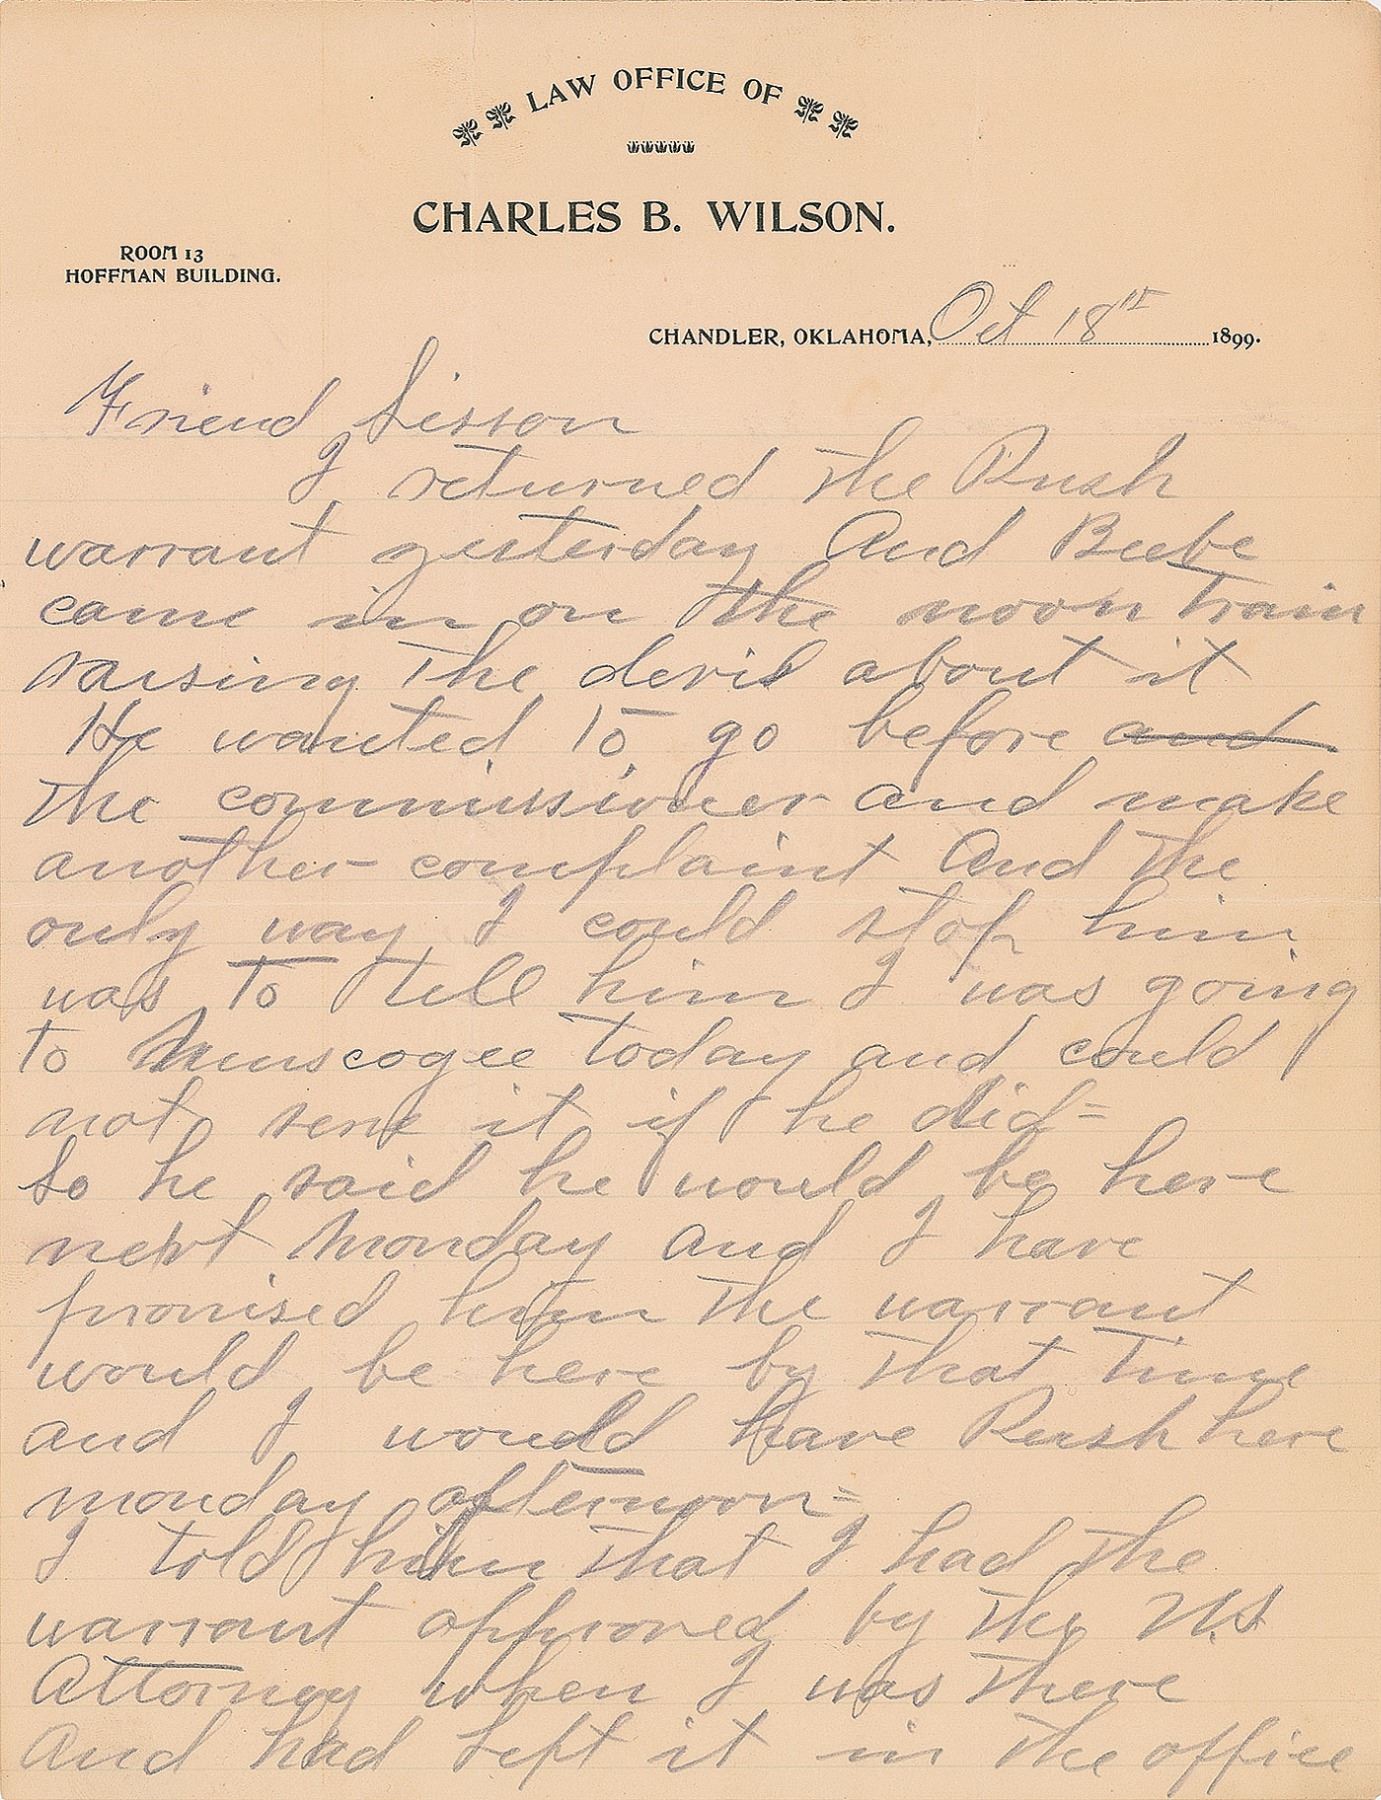 LAW OFFICE OF
CHARLES B. WILSON.
ROOM 13
HOFFMAN BUILDING.
CHANDLER, OKLAHOMA, Oct 18th 1899.
Friend Sisson
I returned the Rush
warrant yesterday And Beebe
came in on the noon train
raising the devil about it
He wanted to go before and
the commissioner and make
another complaint And the
only way I could stop him
was to tell him I was going
to Muscogee today and could
not serve it if he did=
So he said he would be here
next Monday and I have
promised him the warrant
would be here by that time
and I would have Rush here
monday afternoon=
I told him that I had the
warrant approved by the U.S
Attorney when I was there
And had left it in the office